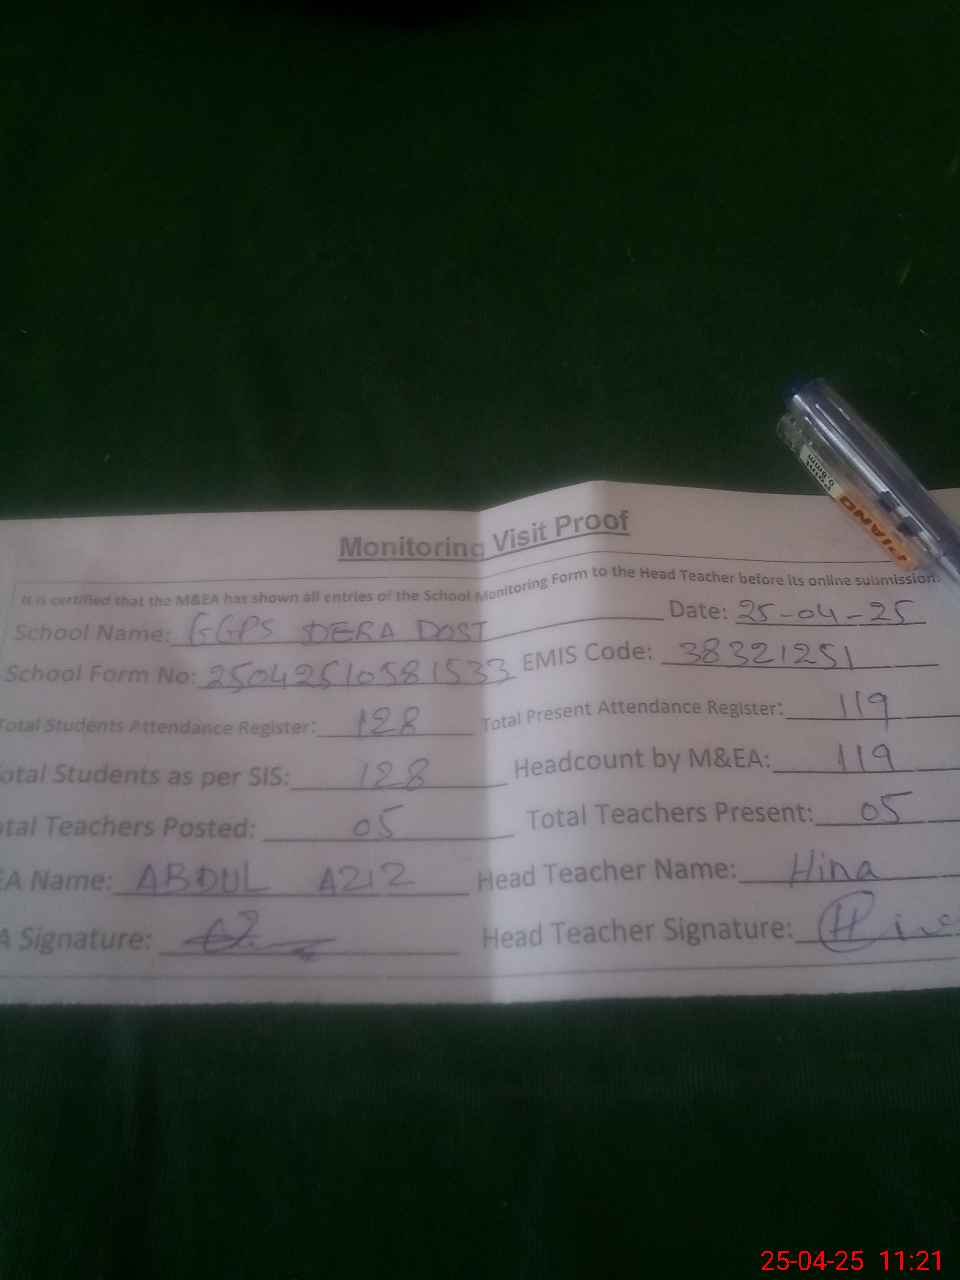 Monitoring Visit Proof
It is certified that the M&EA has shown all entries of the School Monitoring Form to the Head Teacher before its online submission.
School Name: GGPS DERA DOST Date: 25-04-25
School Form No: 25042510581533 EMIS Code: 38321251
Total Students Attendance Register: 128 Total Present Attendance Register: 119
otal Students as per SIS: 128 Headcount by M&EA: 119
tal Teachers Posted: 05 Total Teachers Present: 05
EA Name: ABDUL AZIZ Head Teacher Name: Hina
A Signature: Head Teacher Signature:
PIANO
25-04-25 11:21